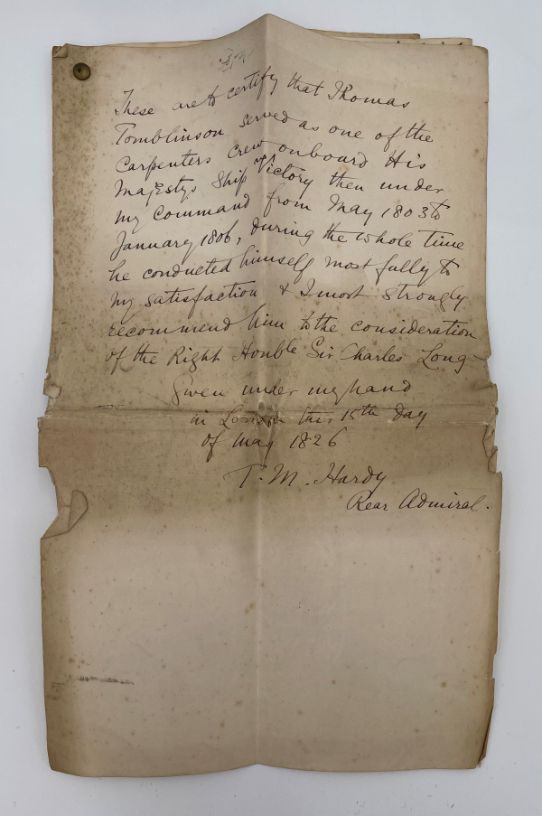 These are to certify that Thomas
Tomblinson served as one of the
Carpenters Crew onboard His
Majestys Ship Victory then under
my Command from May 1803 to
January 1806, During the whole time
he conducted himself most fully to
my satisfaction & I most strongly
recommend him to the consideration
of the Right Honble Sir Charles Long
Given under my hand
in London this 15th Day
of May 1826
T. M. Hardy
Rear Admiral.